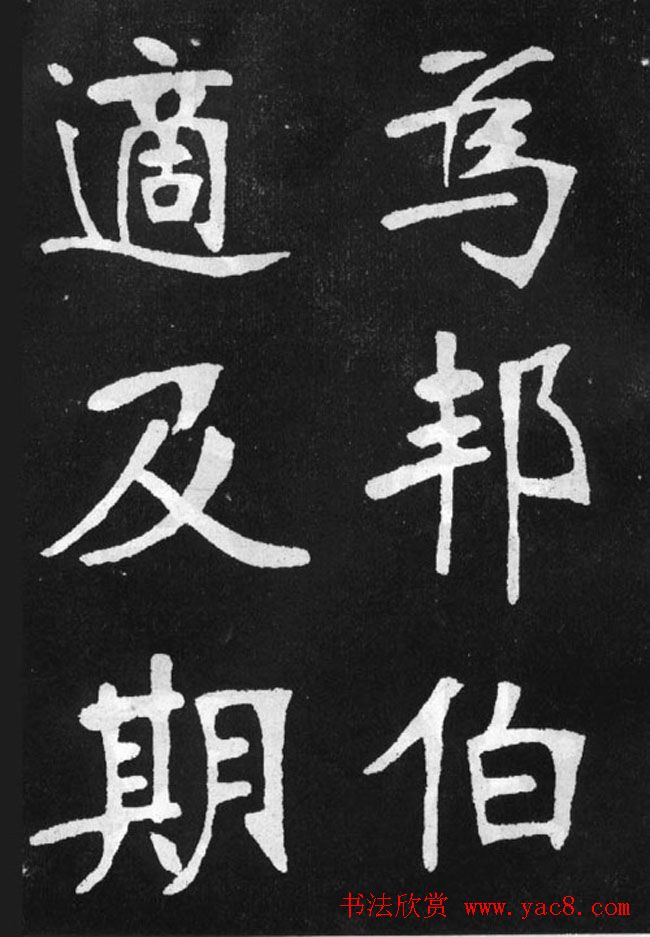 為邦伯
適及期
书法欣赏 www.yac8.com